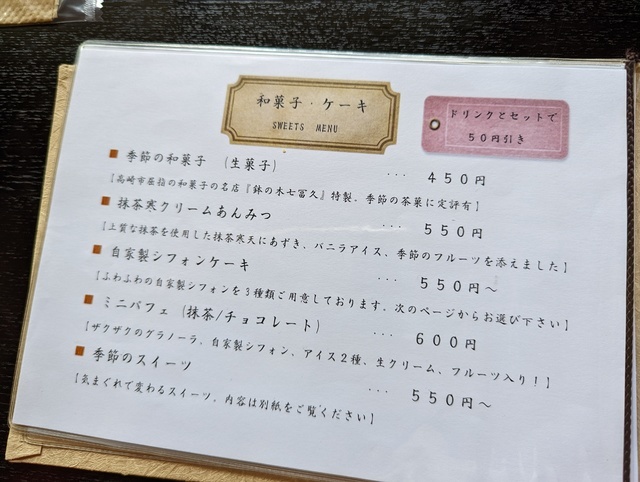 和菓子・ケーキ
SWEETS MENU
ドリンクとセットで
50円引き
■ 季節の和菓子 (生菓子) ... 450円
【高崎市屈指の和菓子の名店『鉢の木七冨久』特製。季節の茶菓に定評有】
■ 抹茶寒クリームあんみつ ... 550円
【上質な抹茶を使用した抹茶寒天にあずき、バニラアイス、季節のフルーツを添えました】
■ 自家製シフォンケーキ ... 550円～
【ふわふわの自家製シフォンを3種類ご用意しております。次のページからお選び下さい】
■ ミニパフェ (抹茶/チョコレート) ... 600円
【ザクザクのグラノーラ、自家製シフォン、アイス2種、生クリーム、フルーツ入り！】
■ 季節のスイーツ ... 550円～
【気まぐれで変わるスイーツ。内容は別紙をご覧ください】